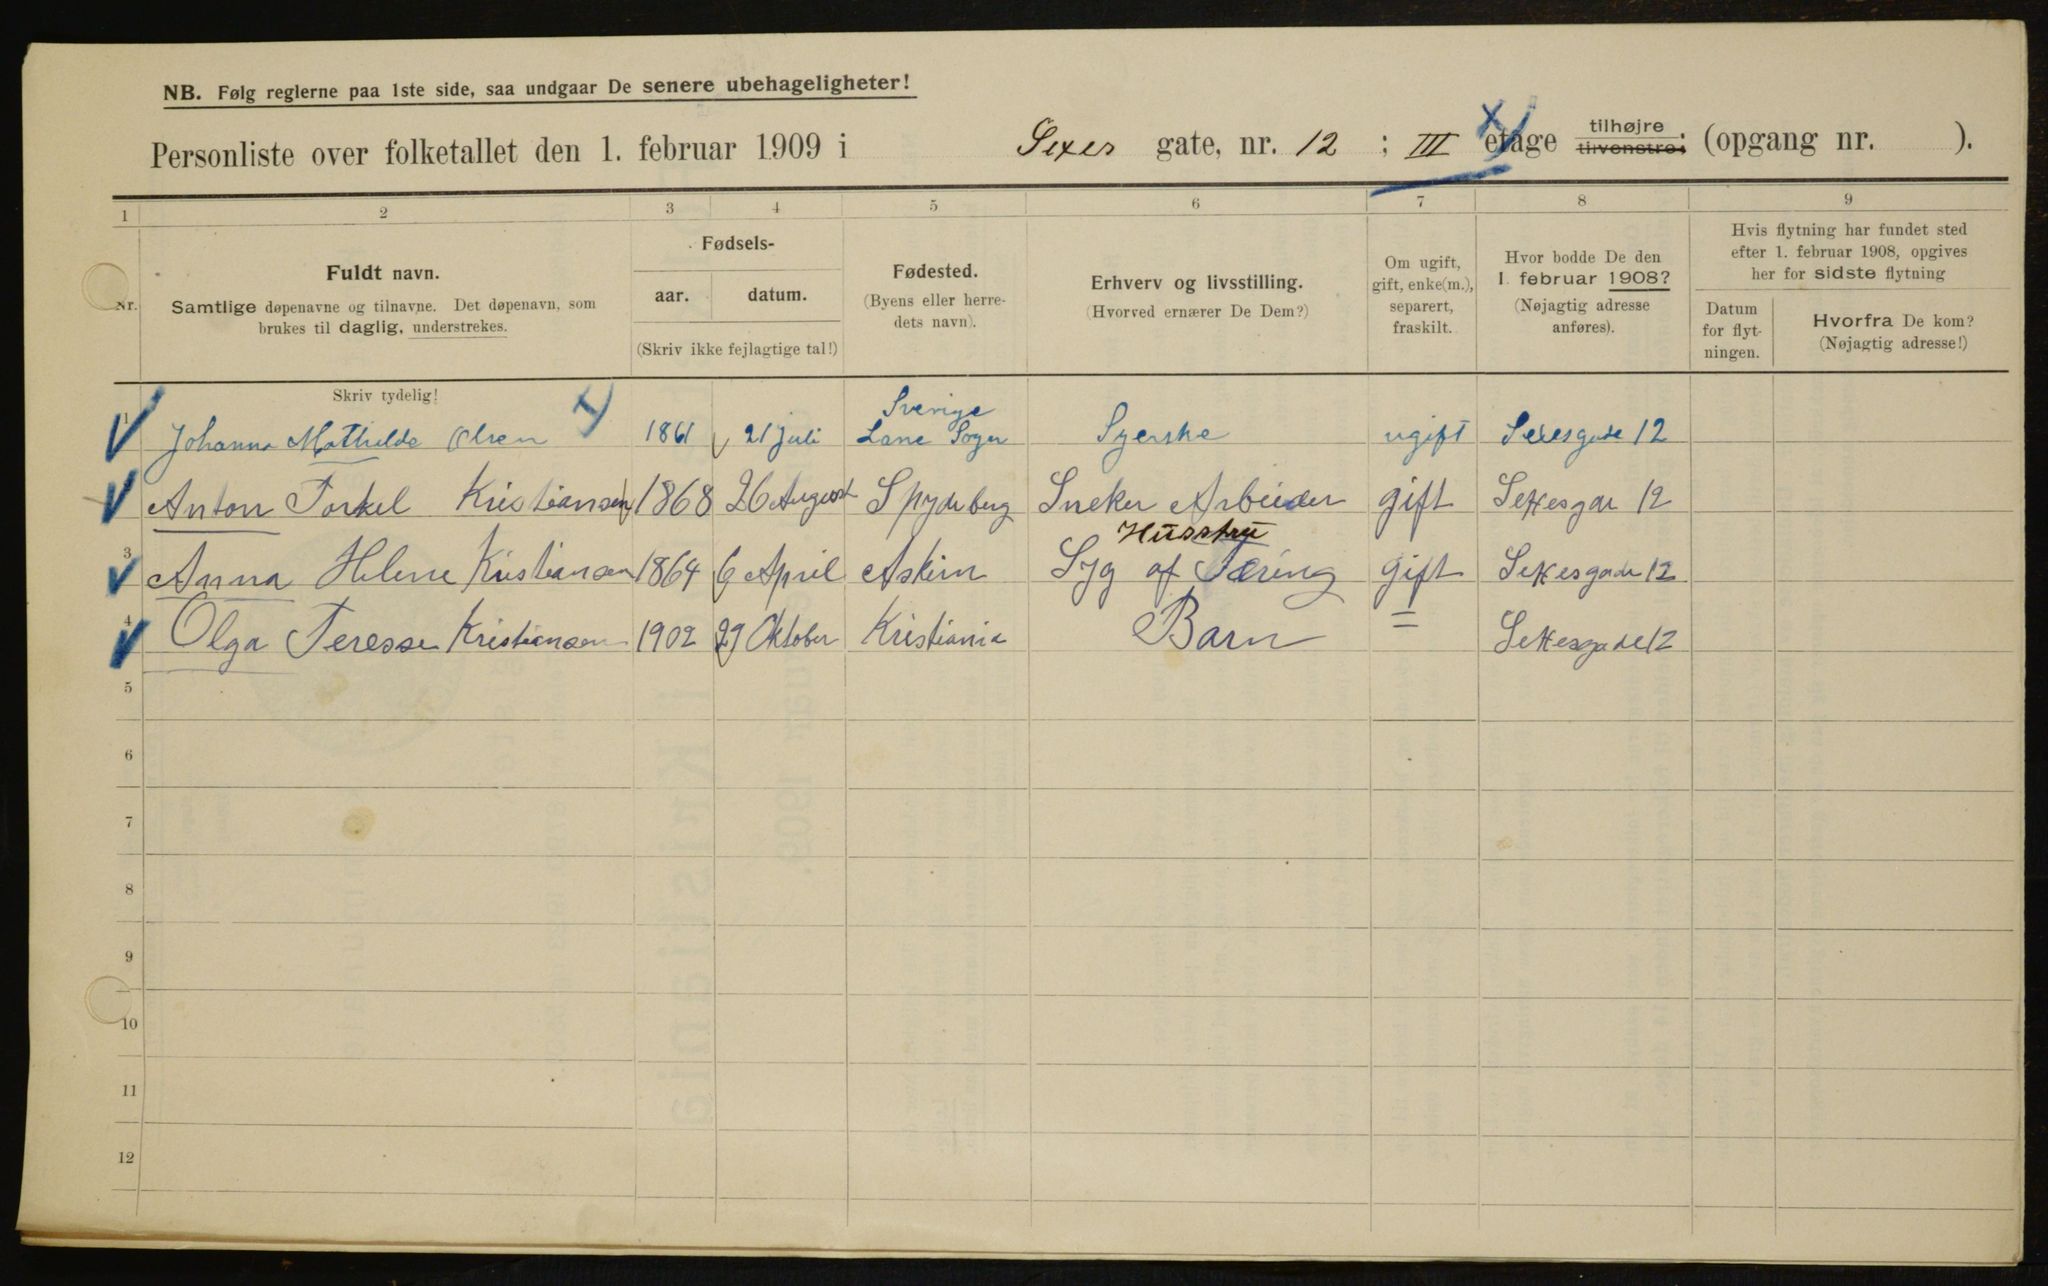 NB. Følg reglerne paa 1ste side, saa undgaar De senere ubehageligheter!
Personliste over folketallet den 1. februar 1909 i Sexes gate, nr. 12 ; III etage tilhøjre tilvenstre; (opgang nr. ).
1 2 3 4 5 6 7 8 9
Nr.
Fuldt navn.
Samtlige døpenavne og tilnavne. Det døpenavn, som
brukes til daglig, understrekes.
Fødsels-
aar. datum.
(Skriv ikke fejlagtige tal!)
Fødested.
(Byens eller herre-
dets navn).
Erhverv og livsstilling.
(Hvorved ernærer De Dem?)
Om ugift,
gift, enke(m.),
separert,
fraskilt.
Hvor bodde De den
1. februar 1908?
(Nøjagtig adresse
anføres).
Hvis flytning har fundet sted
efter 1. februar 1908, opgives
her for sidste flytning
Datum
for flyt-
ningen.
Hvorfra De kom?
(Nøjagtig adresse!)
Skriv tydelig!
Sverige
1 Johanna Mathilde Olsen 1861 21 juli Lane Soger Syerske ugift Sexesgade 12
Anton Torkel Kristiansen 1868 26 August Spydeberg Sneker Arbeider gift Sexesgar 12
Husstru
3 Anna Helene Kristiansen 1864 6 April Askim Syg af Tæring gift Sexesgade 12
4 Olga Teresse Kristiansen 1902 29 Oktober Kristiania Barn = Sexesgade 12
5
6
7
8
9
10
11
12